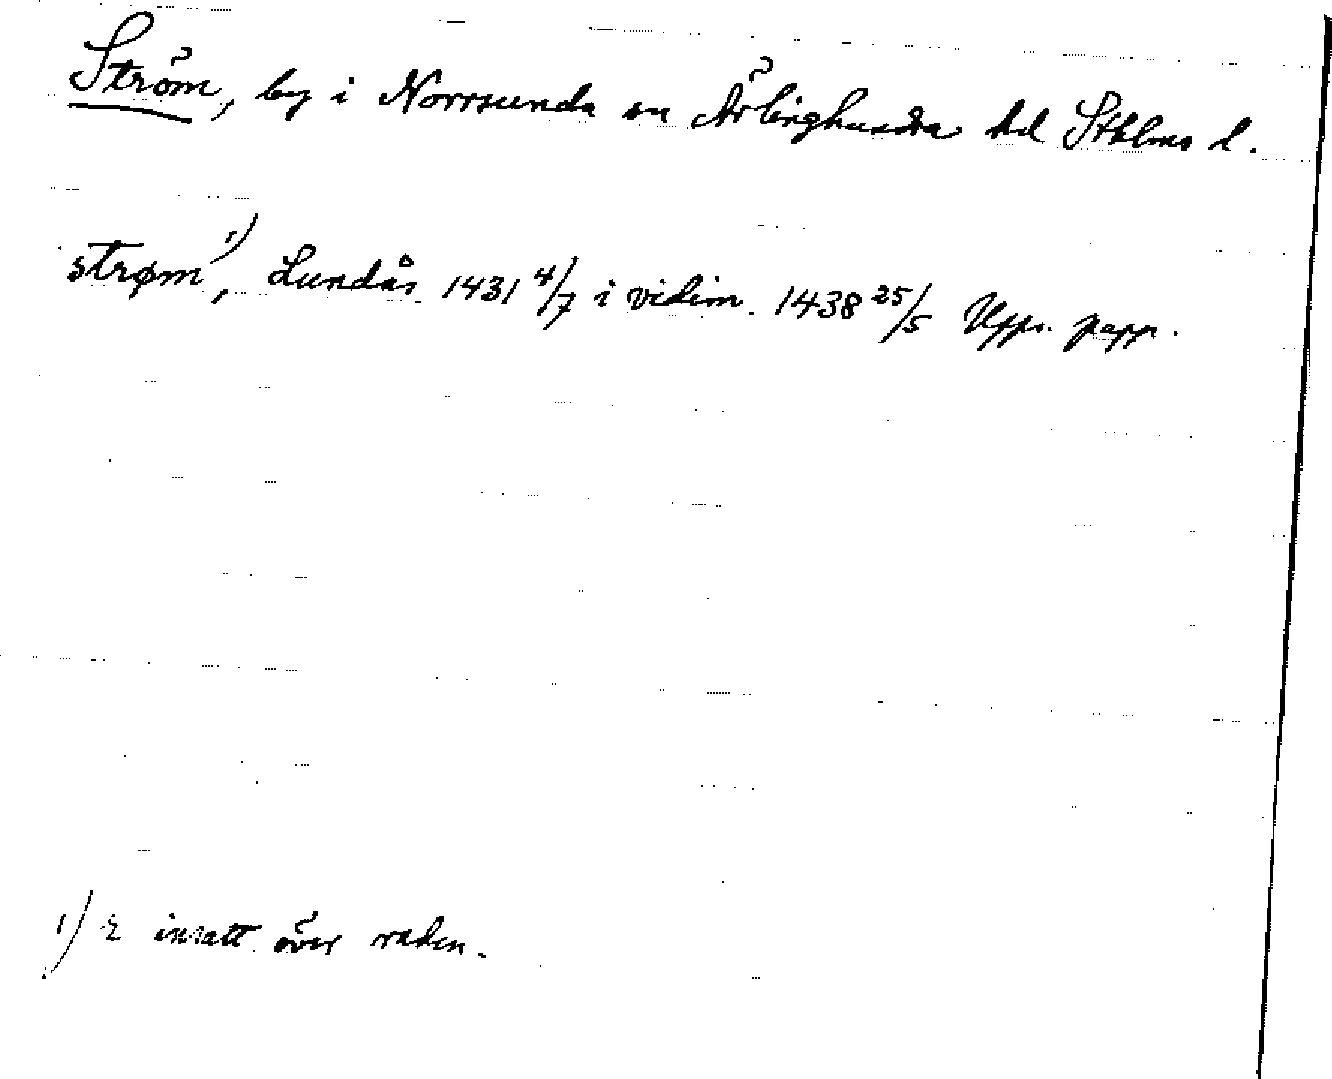 Ström, by i Norrsunda sn Ärlinghundra hd Sthlms l.
strøm 1), Lundås 1431 4/7 i vidim. 1438 25/5 Upps. papp.
1) r insatt över raden.